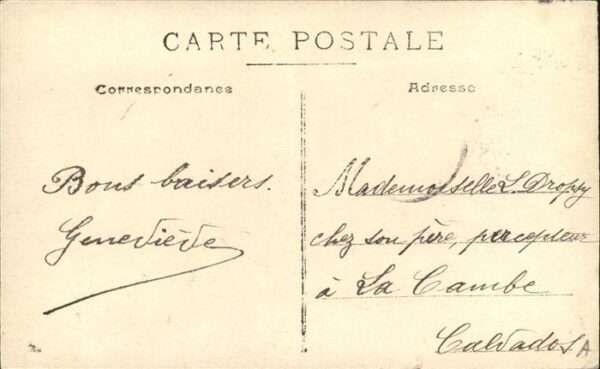 CARTE POSTALE
Correspondance
Adresse
Bons baisers.
Geneviève
Mademoiselle L. Dropsy
chez son père, percepteur
à La Cambe
Calvados
A